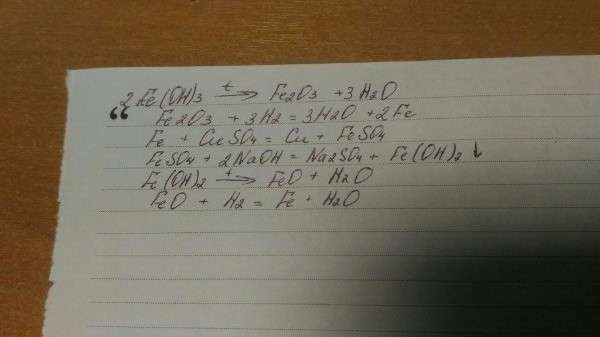 2Fe(OH)3 —t→ Fe2O3 + 3H2O
“ Fe2O3 + 3H2 = 3H2O + 2Fe
Fe + CuSO4 = Cu + FeSO4
FeSO4 + 2NaOH = Na2SO4 + Fe(OH)2 ↓
Fe(OH)2 —t→ FeO + H2O
FeO + H2 = Fe + H2O